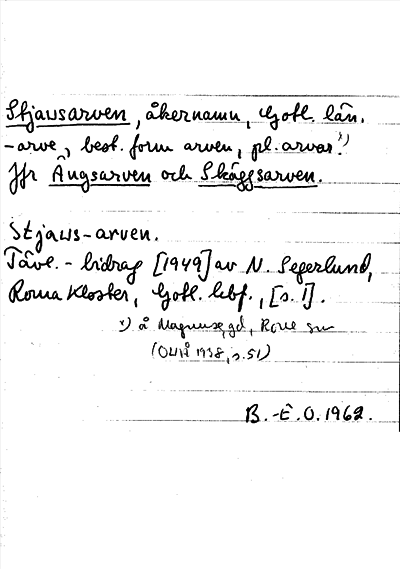 Stjausarven, åkernamn, Gotl. län.
-arve, best. form arven, pl. arvar.¹)
Jfr Ängsarven och Skäggsarven.
Stjaus-arven.
Tävl. - bidrag [1949] av N. Segerlund,
Roma Kloster, Gotl. hbf., [s. 1].
¹) å Magnuse, gd, Rone sn
(OUÅ 1938, s. 51)
B.-E. O. 1962.